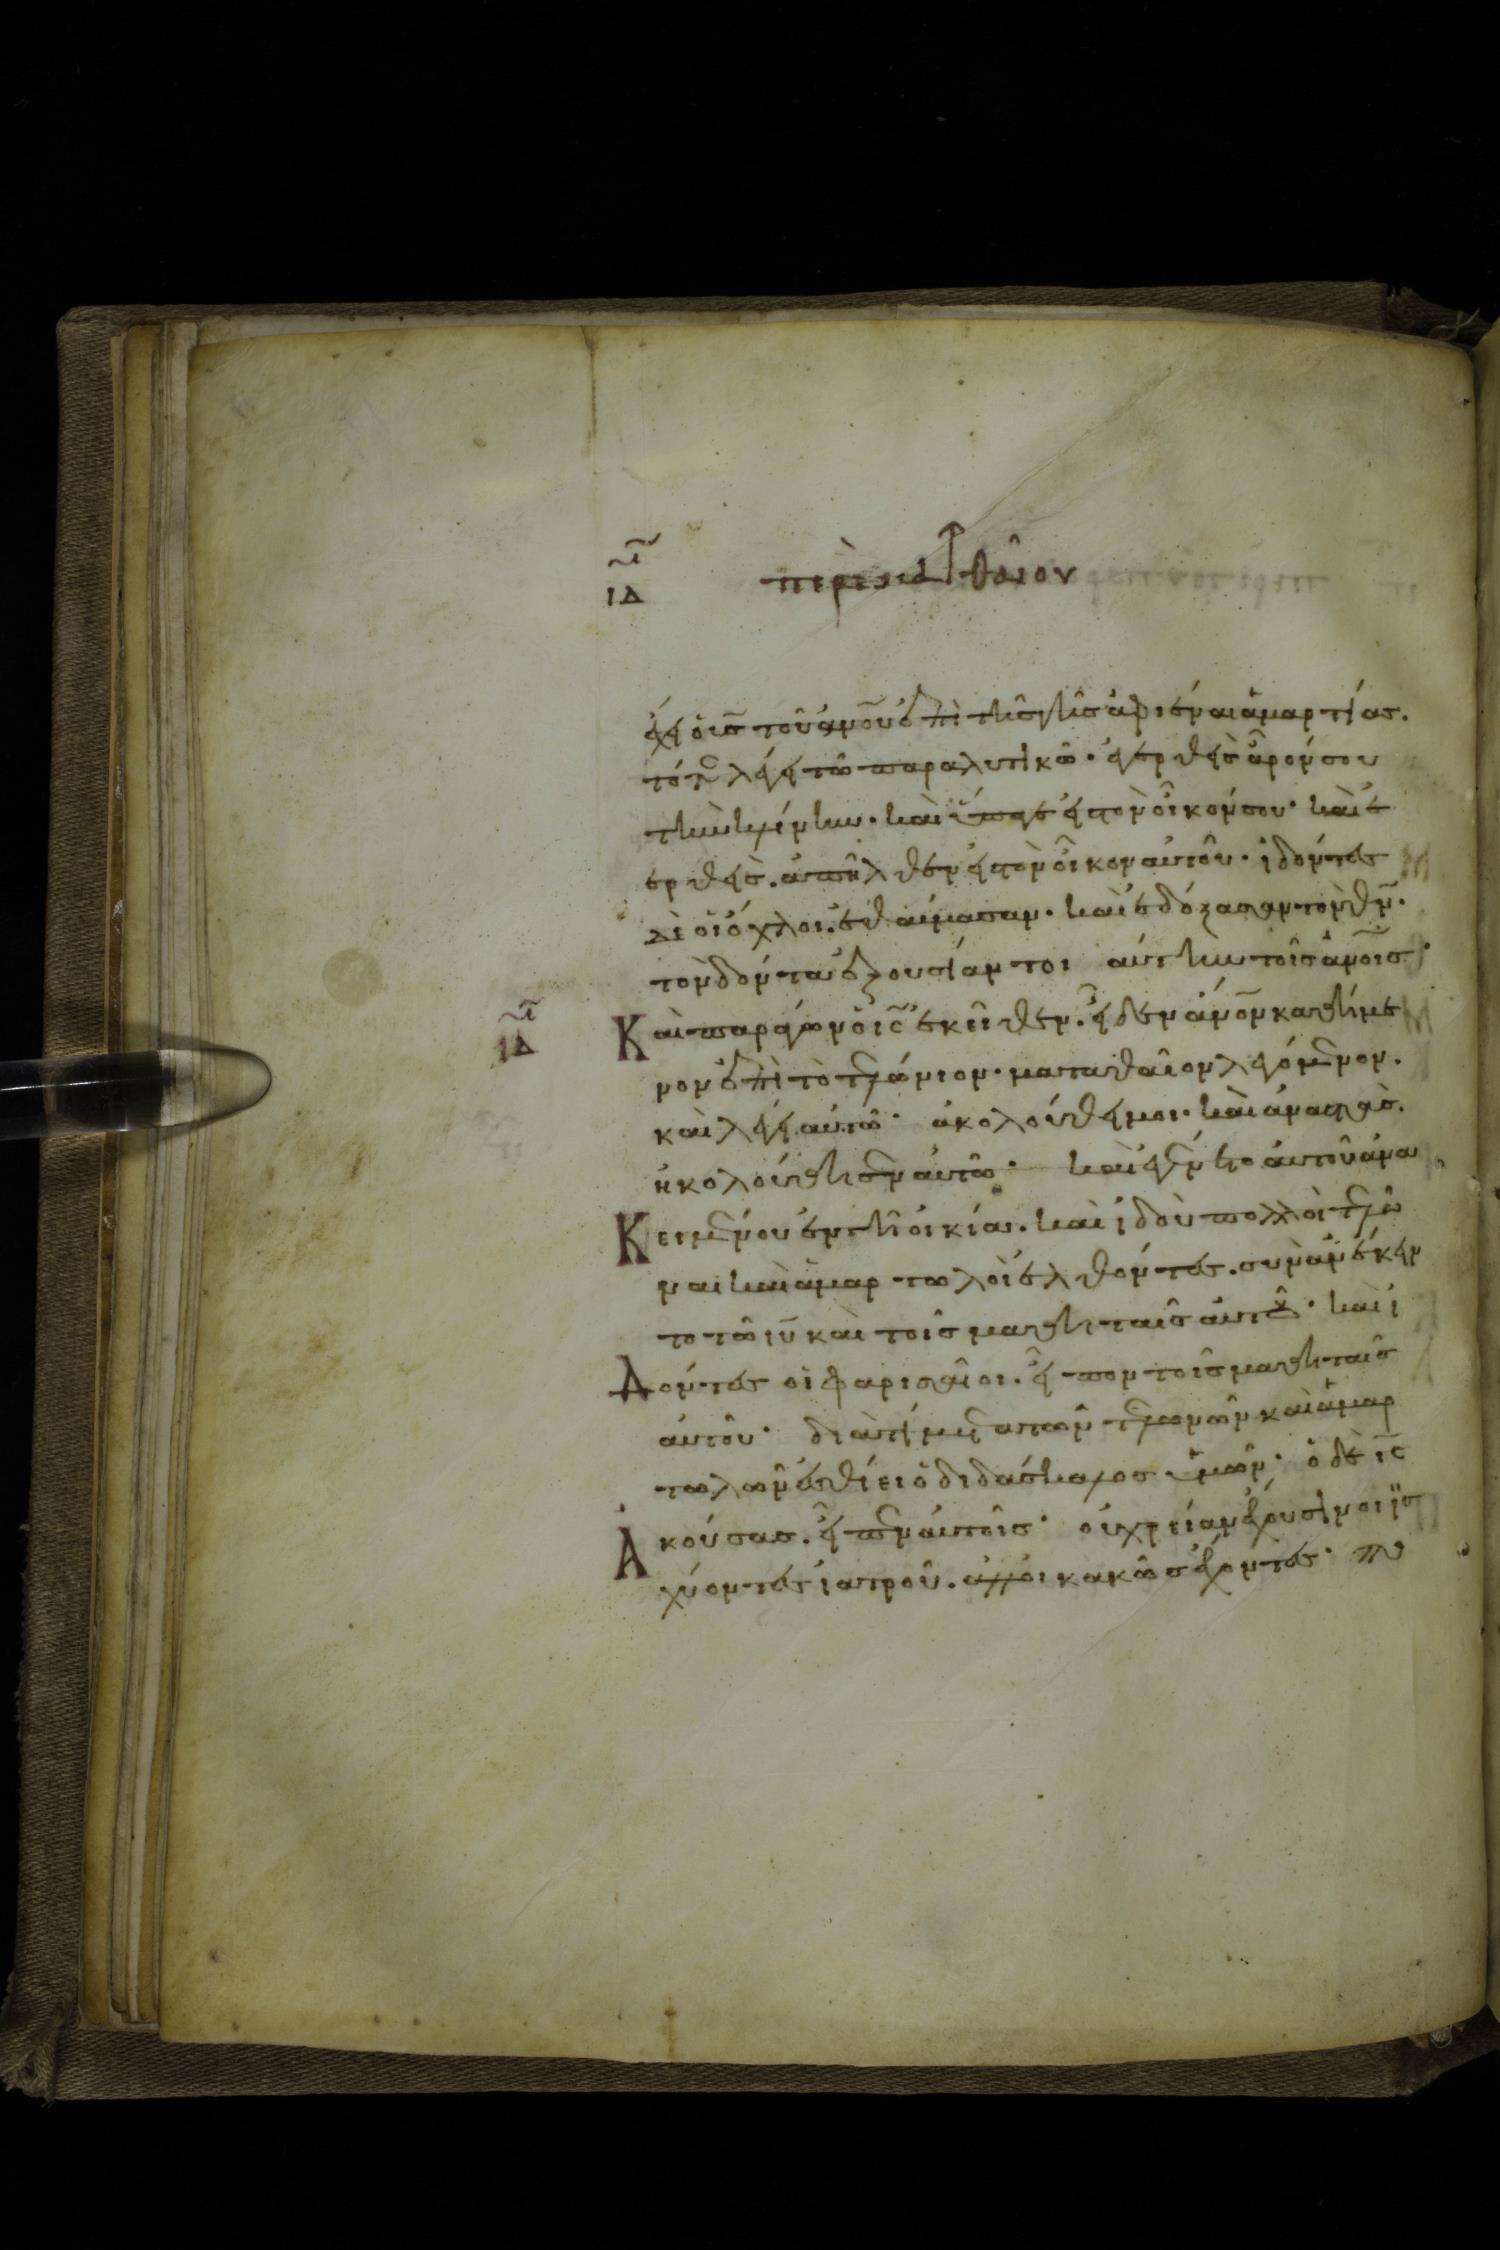 ιδ περι ματθαιον
ἔχει ὁ υ̅ς̅ τοῦ α̅ν̅ο̅υ̅ ἐπὶ τῆς γῆς ἀφιέναι ἁμαρτίας.
τότε λέγει τῶ παραλυτικῶ· ἐγερθεὶς ἆρόν σου
τὴν κλίνην· καὶ ὕπαγε εἰς τὸν οἶκόν σου· καὶ ἐ
γερθεὶς. ἀπῆλθεν εἰς τὸν οἶκον αὐτοῦ· ἰδόντες
δὲ οἱ ὄχλοι. ἐθαύμασαν· καὶ ἐδόξασαν τὸν θ̅ν̅·
τὸν δόντα ἐξουσίαν τοιαύτην τοῖς α̅ν̅ο̅ι̅ς̅·
ιδ Καὶ παράγων ὁ ι̅ς̅ ἐκεῖθεν. εἶδεν α̅ν̅ο̅ν̅ καθήμε
νον ἐπὶ τὸ τελώνιον· ματθαῖον λεγόμενον.
καὶ λέγει αὐτῶ· ἀκολούθει μοι· καὶ ἀναστὰς.
ἠκολούθησεν αὐτῶ· καὶ ἐγένετο αὐτοῦ ἀνα
Κειμένου ἐν τῆ οἰκία. καὶ ἰδοὺ πολλοὶ τελῶ
ναι καὶ ἁμαρτωλοὶ ἐλθόντες. συνανέκειν
το τῶ ι̅υ̅ καὶ τοῖς μαθηταῖς αὐτοῦ· καὶ ἰ
Δόντες οἱ φαρισαῖοι. εἶπον τοῖς μαθηταῖς
αὐτοῦ· διατί μετὰ τῶν τελωνῶν καὶ ἁμαρ
τωλῶν ἐσθίει ὁ διδάσκαλος ὑμῶν· ὁ δὲ ι̅ς̅
Ἀκούσας. εἶπεν αὐτοῖς· οὐ χρείαν ἔχουσιν οἱ ἰσ
χύοντες ἰατροῦ. ἀλλ οἱ κακῶς ἔχοντες· πο